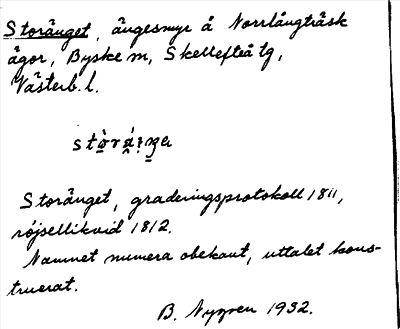 Storänget, ängesmyr å Norrlångträsk
ägor, Byske sn, Skellefteå tg,
Västerb. l.
Storänget, graderingsprotokoll 1811,
röjsellikvid 1812.
Namnet numera obekant, uttalet kons-
truerat.
B. Nygren 1932.